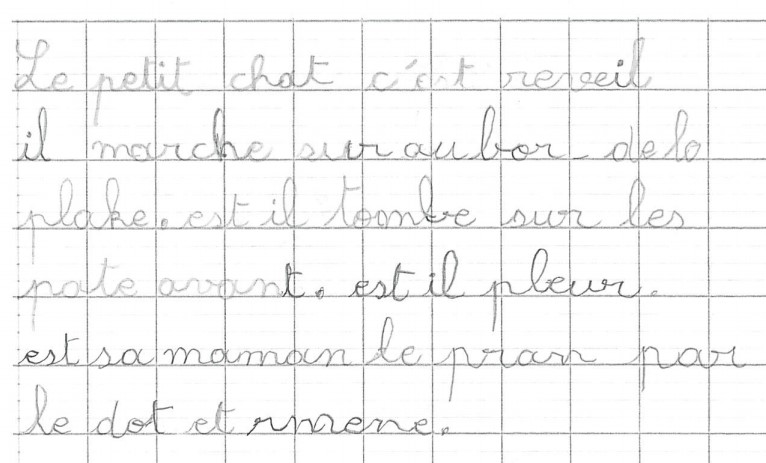 Le petit chat c'et reveil
il marche sur au bor de la
plake. est il tombe sur les
pate avant. est il pleur.
est sa maman le pran par
le dot et rmene.